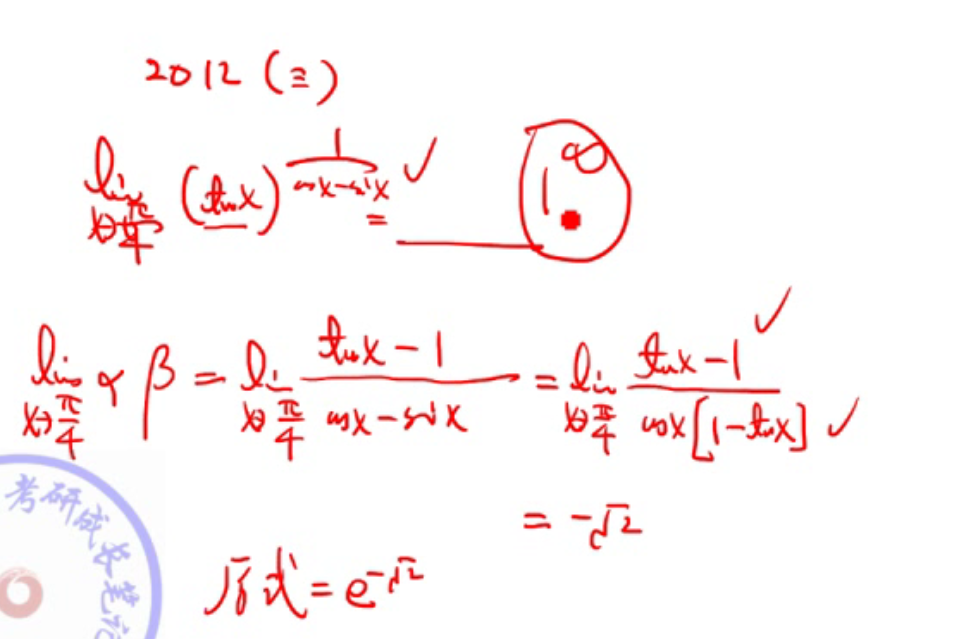 2012 (三)
lim x→π/4 (tanx)^(1/(cosx-sinx)) ✓ = ____ 1^∞
lim x→π/4 αβ = lim x→π/4 (tanx-1)/(cosx-sinx) = lim x→π/4 (tanx-1)/(cosx[1-tanx]) ✓ ✓
= -√2
原式 = e^(-√2)
考研成女笔记